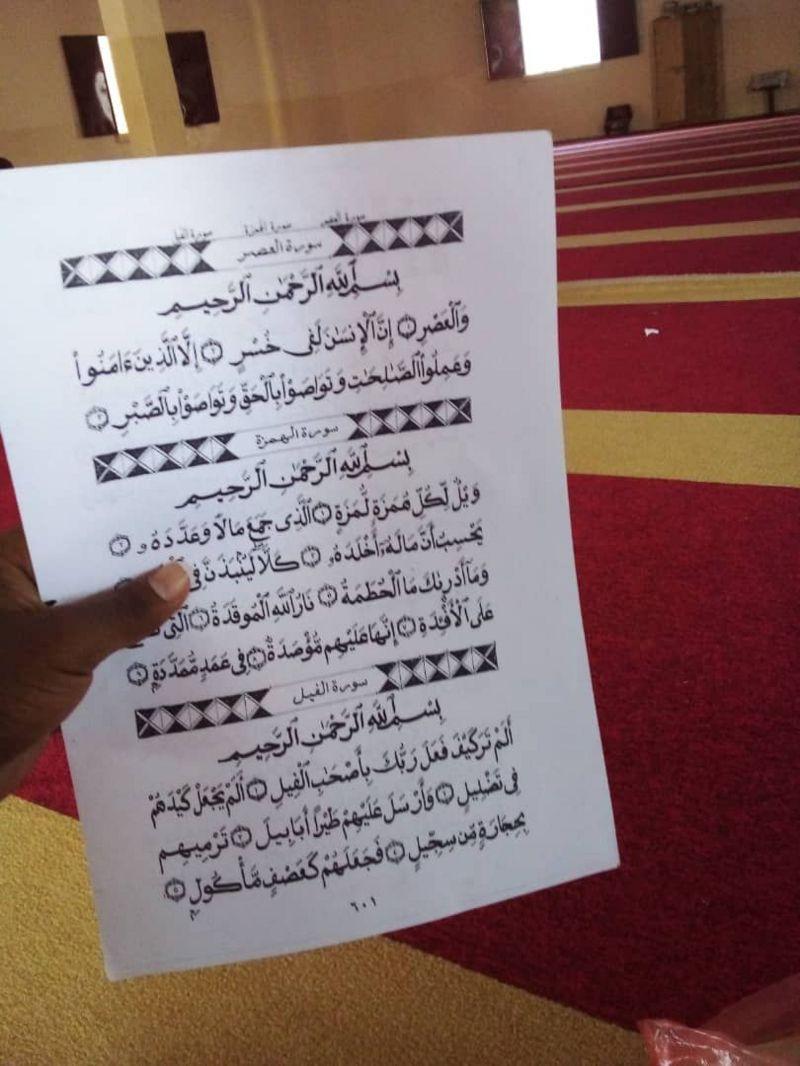 سورة العصر سورة الهمزة سورة الفيل
سورة العصر
بِسْمِ ٱللَّهِ ٱلرَّحْمَٰنِ ٱلرَّحِيمِ
وَٱلْعَصْرِ ١ إِنَّ ٱلْإِنسَٰنَ لَفِى خُسْرٍ ٢ إِلَّا ٱلَّذِينَ ءَامَنُوا۟
وَعَمِلُوا۟ ٱلصَّٰلِحَٰتِ وَتَوَاصَوْا۟ بِٱلْحَقِّ وَتَوَاصَوْا۟ بِٱلصَّبْرِ ٣
سورة الهمزة
بِسْمِ ٱللَّهِ ٱلرَّحْمَٰنِ ٱلرَّحِيمِ
وَيْلٌ لِّكُلِّ هُمَزَةٍ لُّمَزَةٍ ١ ٱلَّذِى جَمَعَ مَالًا وَعَدَّدَهُۥ ٢
يَحْسِبُ أَنَّ مَالَهُۥٓ أَخْلَدَهُۥ ٣ كَلَّا لَيُنۢبَذَنَّ فِى
وَمَآ أَدْرَىٰكَ مَا ٱلْحُطَمَةُ ٥ نَارُ ٱللَّهِ ٱلْمُوقَدَةُ ٦ ٱلَّتِى
عَلَى ٱلْأَفْـِٔدَةِ ٧ إِنَّهَا عَلَيْهِم مُّؤْصَدَةٌ ٨ فِى عَمَدٍ مُّمَدَّدَةٍۭ ٩
سورة الفيل
بِسْمِ ٱللَّهِ ٱلرَّحْمَٰنِ ٱلرَّحِيمِ
أَلَمْ تَرَ كَيْفَ فَعَلَ رَبُّكَ بِأَصْحَٰبِ ٱلْفِيلِ ١ أَلَمْ يَجْعَلْ كَيْدَهُمْ
فِى تَضْلِيلٍ ٢ وَأَرْسَلَ عَلَيْهِمْ طَيْرًا أَبَابِيلَ ٣ تَرْمِيهِم
بِحِجَارَةٍ مِّن سِجِّيلٍ ٤ فَجَعَلَهُمْ كَعَصْفٍ مَّأْكُولٍۭ ٥
٦٠١